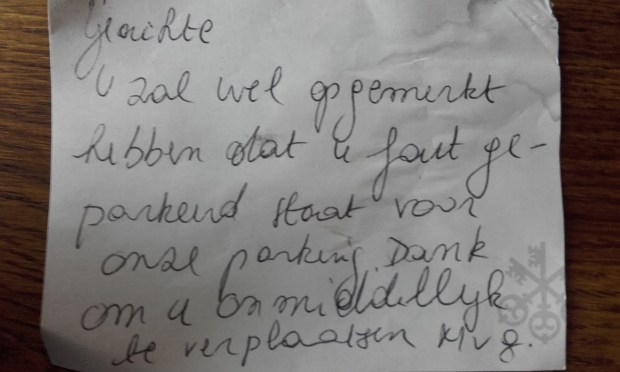 Geachte
U zal wel opgemerkt
hebben dat u fout ge-
parkeerd staat voor
onze parking Dank
om u onmiddellijk
te verplaatsen Mvg.